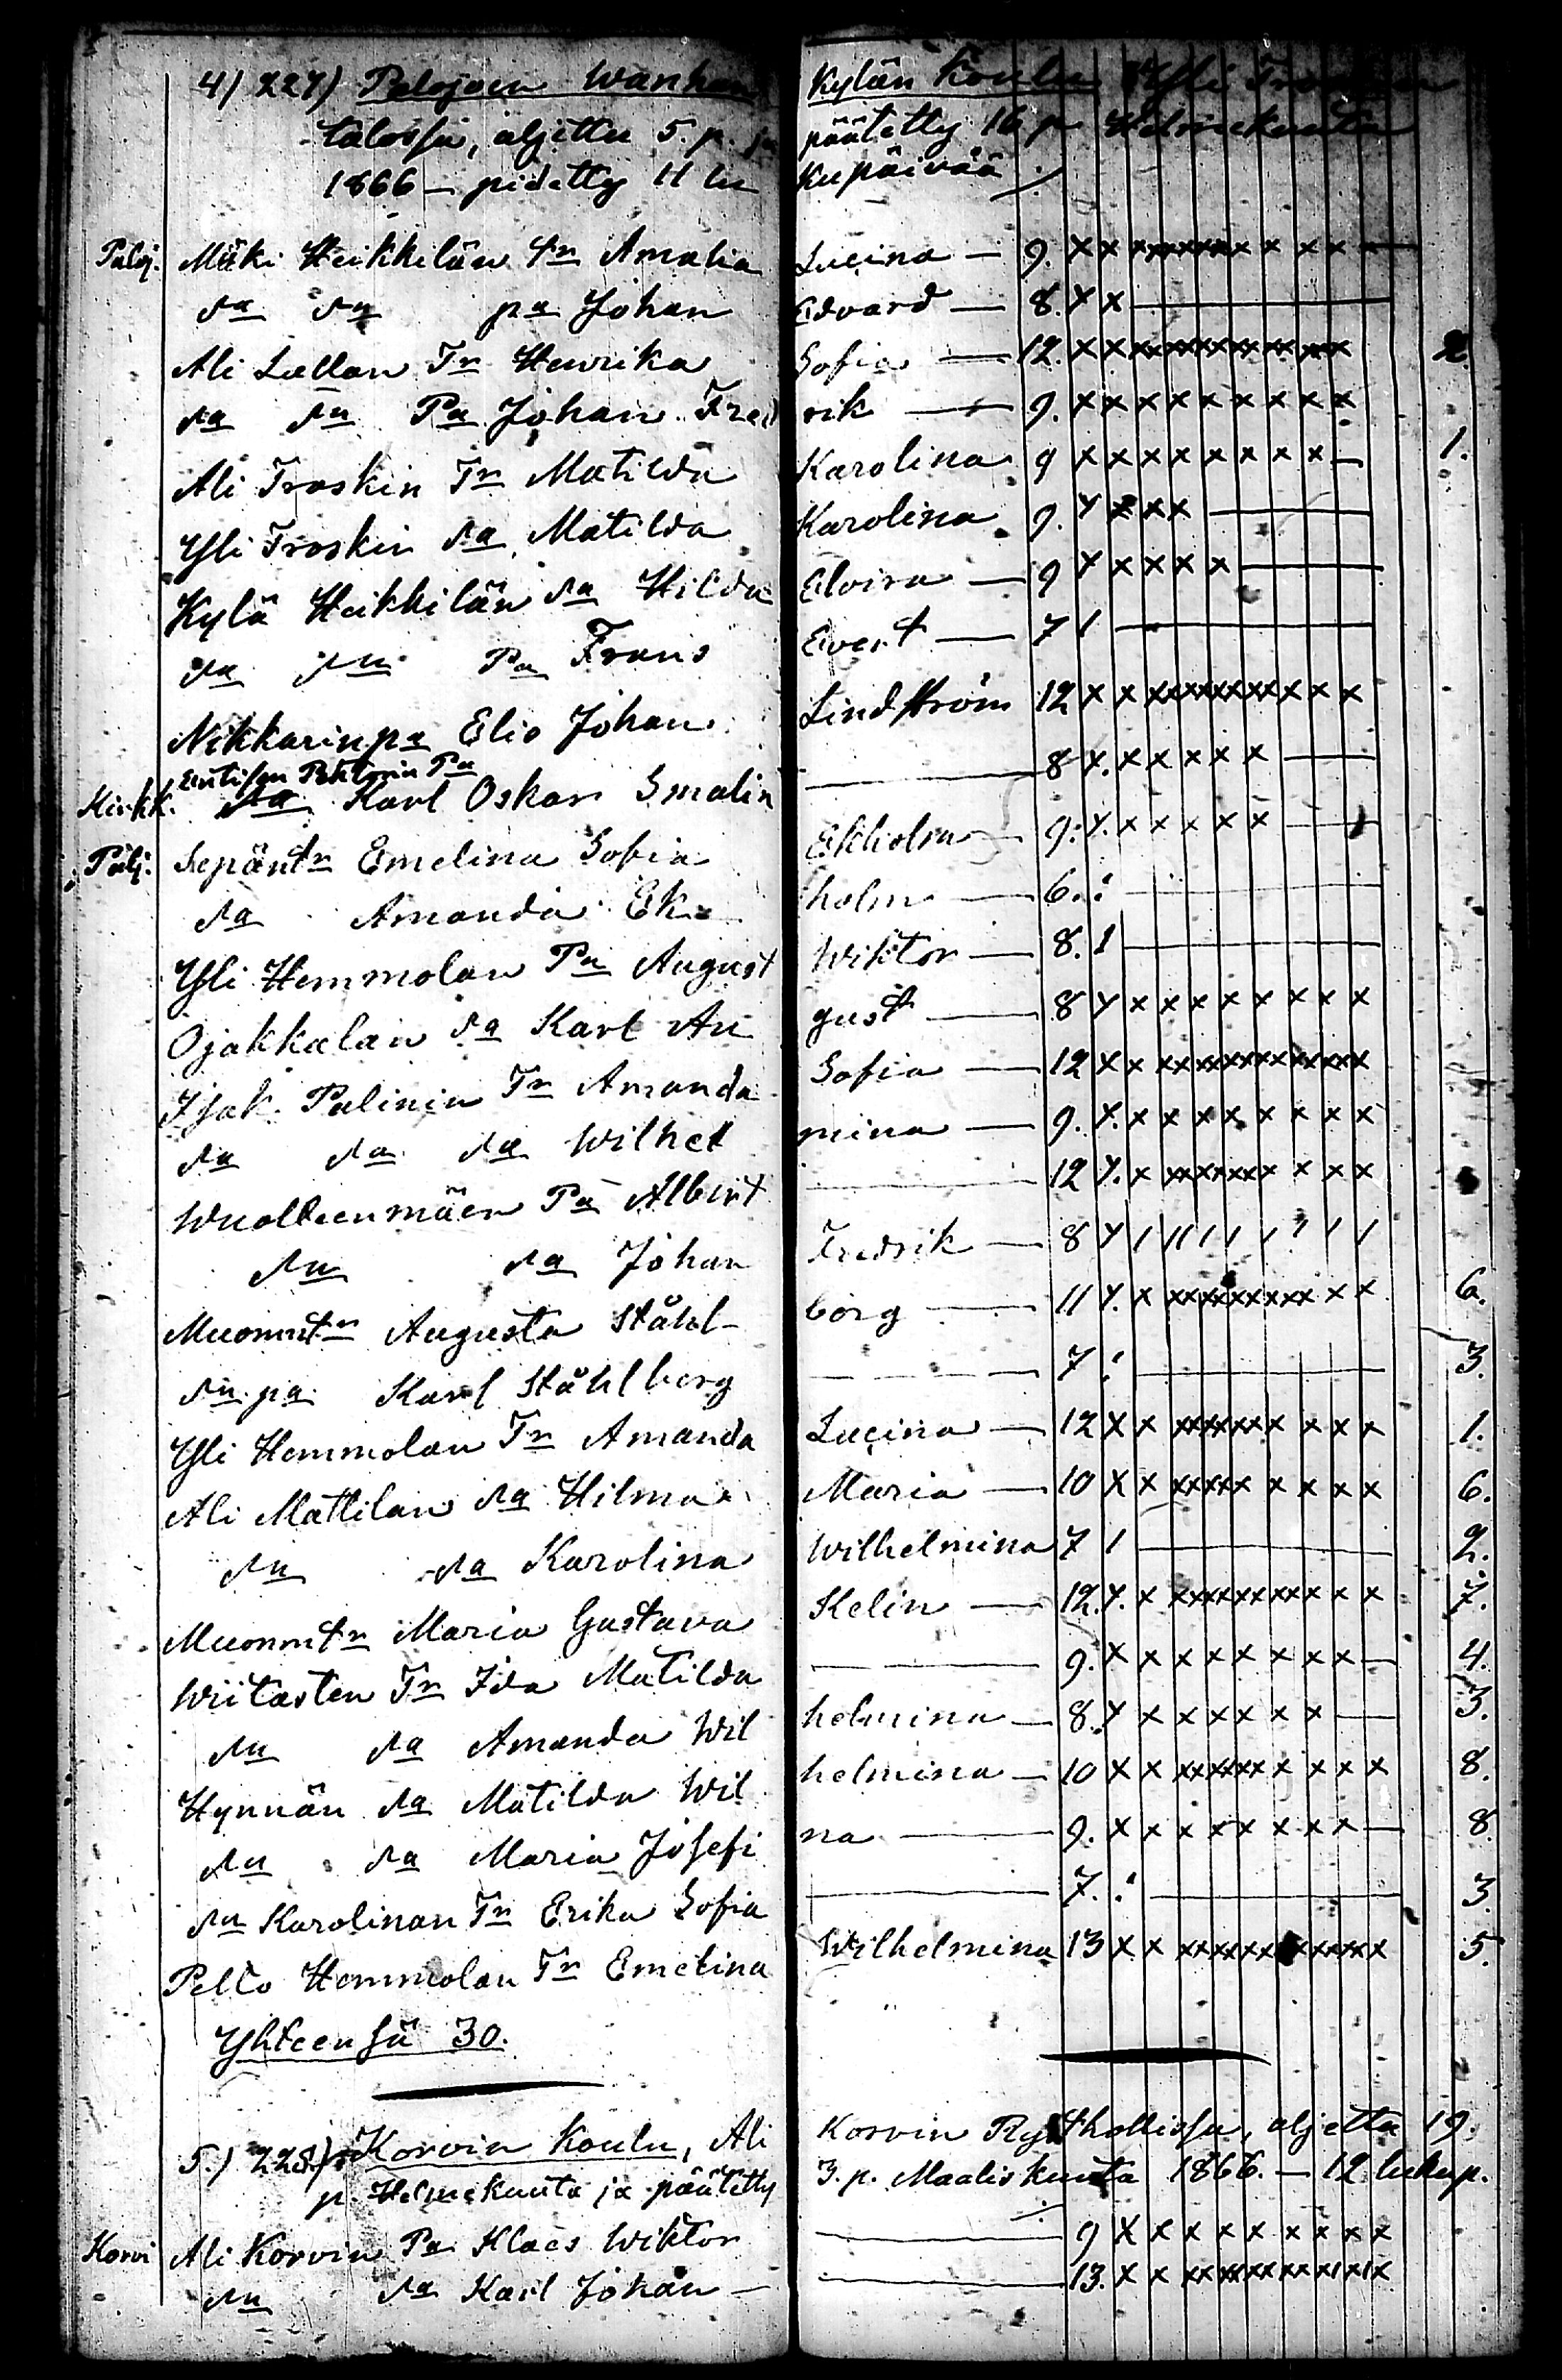 4) 227) Palojoen Wanhan Kylän Koulu Yli Troskin
talossa, aljettu 5. p. ja päätetty 16 p Helmekuuta
1866 — pidetty 11 lu kupäivää
Paloj. Mäki Heikkilän tr Amalia Lucina — 9. x x x x x x x x x x x x —
da da pa Johan Edvard — 8. x x —
Ali Lallan Tr Henrika Sofia — 12. x x x x x x x x x x x x x 2
da da Pa Johan Fred rik — 9. x x x x x x x x x
Ali Troskin Tr Matilda Karolina 9 x x x x x x x x — 1.
Yli Troskin da Matilda Karolina 9. x x x x —
Kylä Heikkilän da Hilda Elvira — 9 x x x x x —
da da Pa Frans Evert — 7 1 —
Nikkarin pa Elis Johan Lindström 12 x x x x x x x x x x x x
Entisen Pehtorin Pa
Kirkk. da Karl Oskar Smalin — 8 x x x x x x —
Palj. Sepän tr Emelina Sofia Ekholm — 9. x x x x x x —
da Amanda Ek holm — 6. : —
Yli Hemmolan Pa August Wiktor — 8. 1 —
Ojakkalan da Karl Au gust — 8 x x x x x x x x x
Isak. Palinin Tr Amanda Sofia — 12 x x x x x x x x x x x x x
da da da Wilhel mina — 9. x x x x x x x x x
Wuolteenmäen Pa Albert — 12 x x x x x x x x x x x
da da Johan Fredrik — 8 x / / / / / / / / /
Muonmtr Augusta Ståhl- berg — 11 x x x x x x x x x x x x 6.
da pa Karl Ståhlberg — 7 : — 3.
Yli Hemmolan Tr Amanda Lucina — 12 x x x x x x x x x x x x 1.
Ali Mattilan da Hilma Maria — 10 x x x x x x x x x x x 6.
da da Karolina Wilhelmina 7 1 — 2.
Muonmtr Maria Gustava Kelin — 12. x x x x x x x x x x x x 7.
Wiitasten Tr Ida Matilda — 9. x x x x x x x x — 4.
da da Amanda Wil helmina — 8. x x x x x x x — 3.
Hynnän da Matilda Wil helmina — 10 x x x x x x x x x x x 8.
da da Maria Josefi na — 9. x x x x x x x x — 8.
da Karolinan Tr Erika Sofia — 7. : — 3
Pelto Hemmolan Tr Emelina Wilhelmina 13 x x x x x x x x x x x x x 5.
Yhteensä 30.
5.) 228) Korvin Koulu, Ali Korvin Rysthollissa, aljettu 19.
p. Helmekuuta ja päätetty 3. p. Maaliskuuta 1866. — 12 lukup.
Korvi Ali Korvin Pa Klaes Wiktor — 9 x x x x x x x x x
da da Karl Johan — 13. x x x x x x x x x x x x x